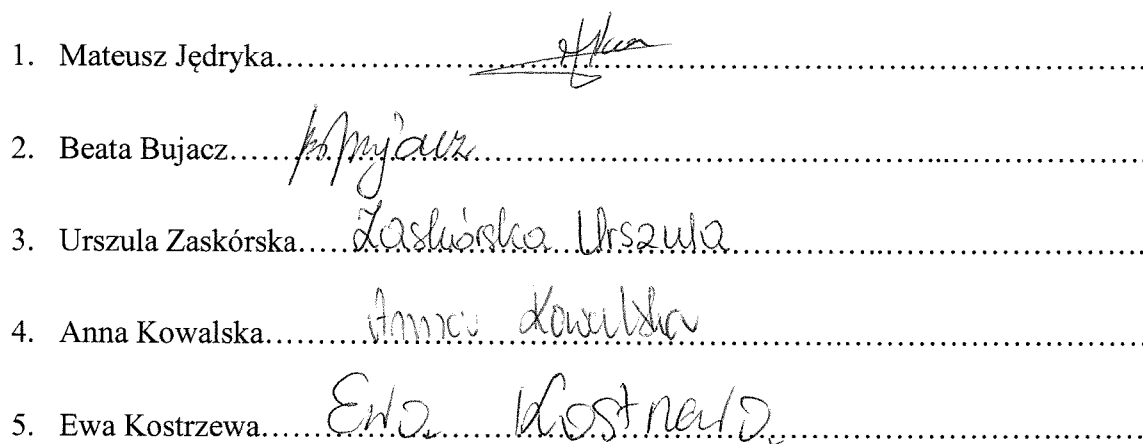 1. Mateusz Jędryka
2. Beata Bujacz
3. Urszula Zaskórska Zaskórska Urszula
4. Anna Kowalska Anna Kowalska
5. Ewa Kostrzewa Ewa